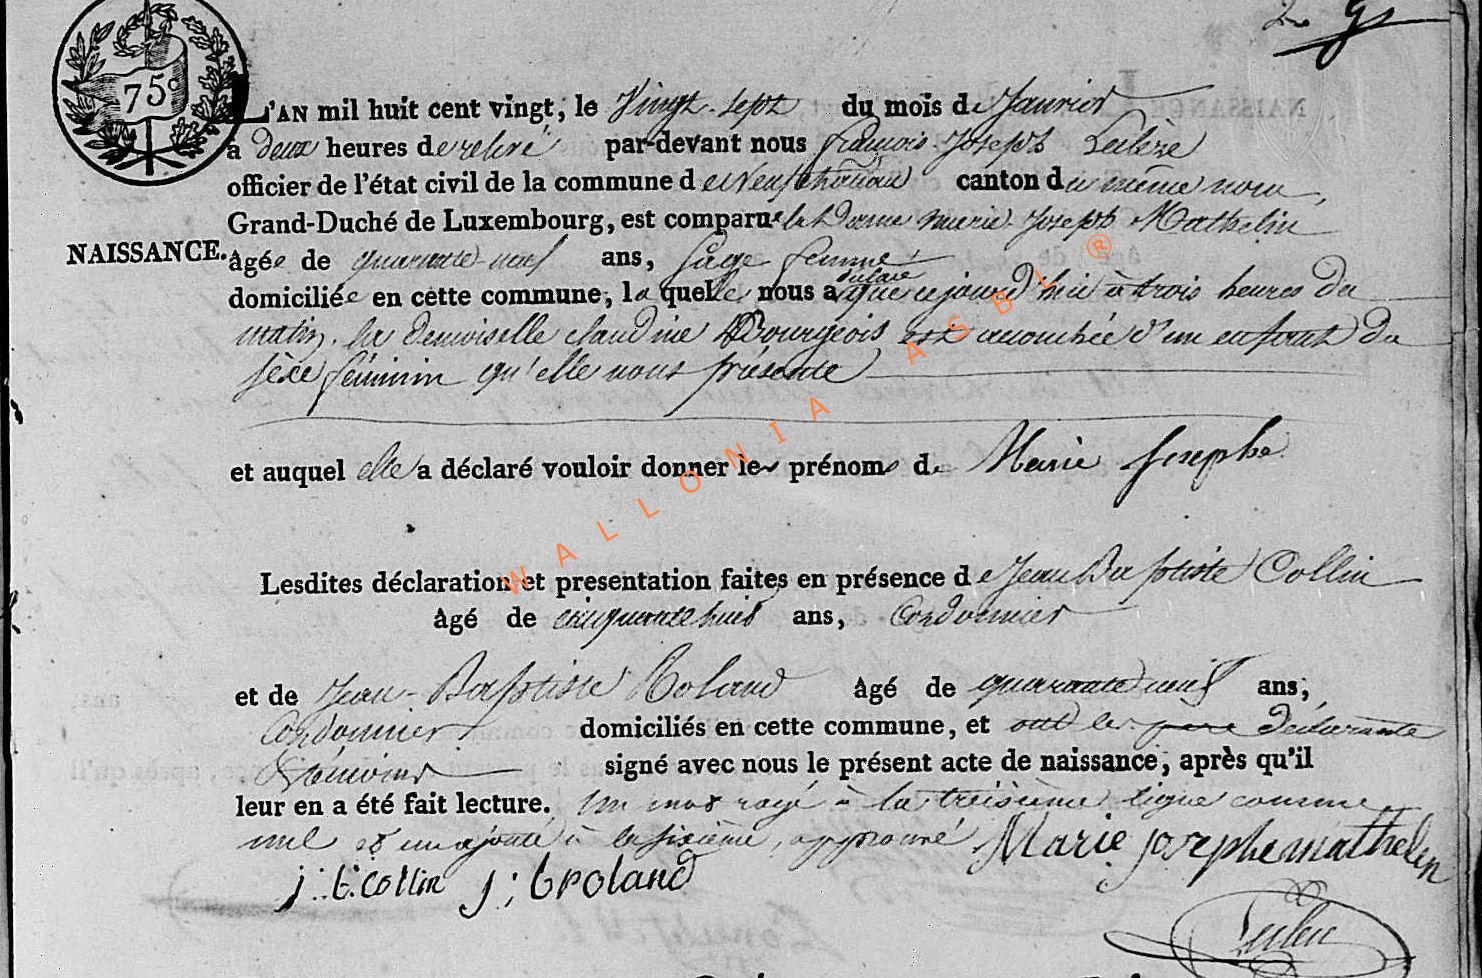 75c
L'AN mil huit cent vingt, le Vingt-sept du mois de Janvier
à deux heures de relevé par-devant nous François Joseph
officier de l'état civil de la commune de Neufchateau canton du même nom,
Grand-Duché de Luxembourg, est comparue la dame Marie-Joseph Mathelin
NAISSANCE.
âgée de quarante neuf ans, sage femme
déclaré
domiciliée en cette commune, la quelle nous a que cejourd'hui à trois heures du
matin, la demoiselle claudine Bourgeois est accouchée d'un enfant du
sèxe féminin qu'elle nous présente
et auquel elle a déclaré vouloir donner les prénoms de Marie Josephe
Lesdites déclaration et presentation faites en présence de Jean Baptiste Collin
âgé de cinquante huit ans, Cordonnier
et de Jean-Baptiste Roland âgé de quarante neuf ans,
Cordonnier domiciliés en cette commune, et ont les père déclarante
& témoins signé avec nous le présent acte de naissance, après qu'il
leur en a été fait lecture. Un mot rayé à la treisième ligne comme
nul et un ajouté à la sixième, approuvé Marie josephe mathelin
j:b:collin j:b roland
WALLONIA ASBL ®